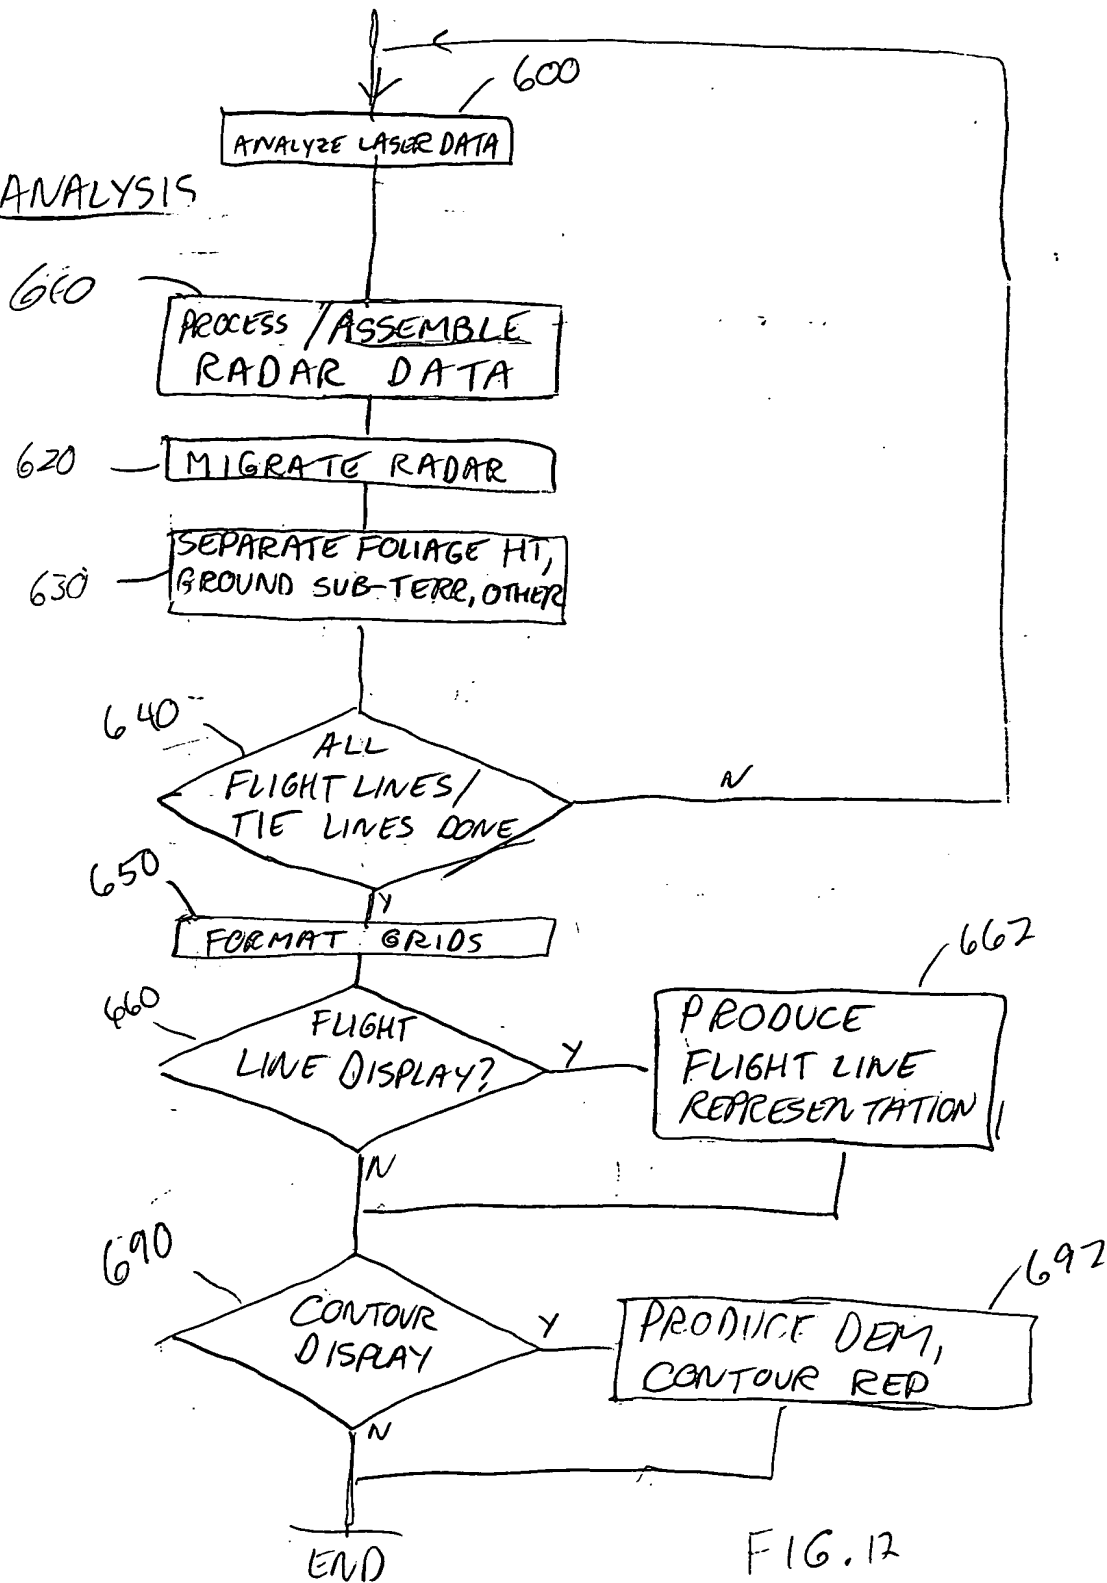 600
ANALYZE LASER DATA
ANALYSIS
610
PROCESS / ASSEMBLE
RADAR DATA
620
MIGRATE RADAR
SEPARATE FOLIAGE HT,
GROUND SUB-TERR, OTHER
630
640
ALL
FLIGHT LINES/
TIE LINES DONE
N
650
Y
FORMAT GRIDS
660
FLIGHT
LINE DISPLAY?
Y
662
PRODUCE
FLIGHT LINE
REPRESENTATION
N
690
CONTOUR
DISPLAY
Y
692
PRODUCE DEM,
CONTOUR REP
N
END
FIG. 12